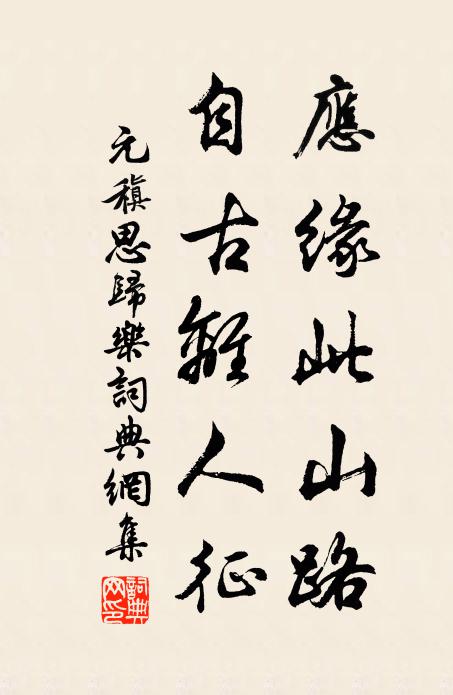 應緣此山路
自古離人征
元稹思歸樂詞典網集
詞典網印